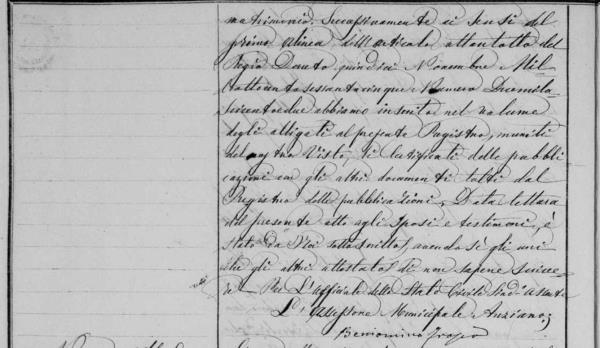 matrimonio. Successivamente ai sensi del
primo alinea dell'articolo ottantotto del
Regio Decreto quindici Novembre Mil
ottocentosessantacinque Numero Duemila
seicentodue abbiamo inserito nel volume
degli alligati al presente Registro, muniti
del nostro Visto, li certificati delle pubbli
cazione con gli altri documenti tutti dal
Registro delle pubblicazioni. Data lettura
del presente atto agli Sposi e testimoni, è
stato da Noi sottoscritto, avendo sì gli uni
che gli altri attestato di non sapere scrive
re — Per L'Ufficiale dello Stato Civile Sind° assente
L'Assessore Municipale Anziano;
Beniamino